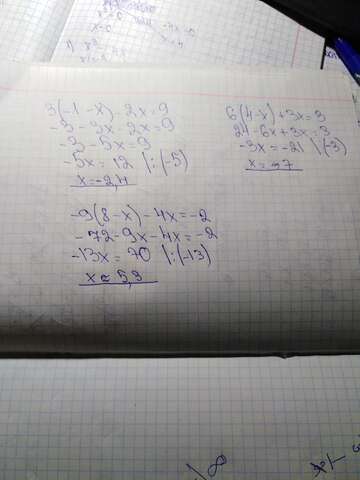 3(-1-x)-2x=9
-3-3x-2x=9
-3-5x=9
-5x=12 |:(-5)
x=-2,4
6(4-x)+3x=3
24-6x+3x=3
-3x=-21 |(-3)
x=7
-9(8-x)-4x=-2
-72-9x-4x=-2
-13x=70 |:(-13)
x≈5,3